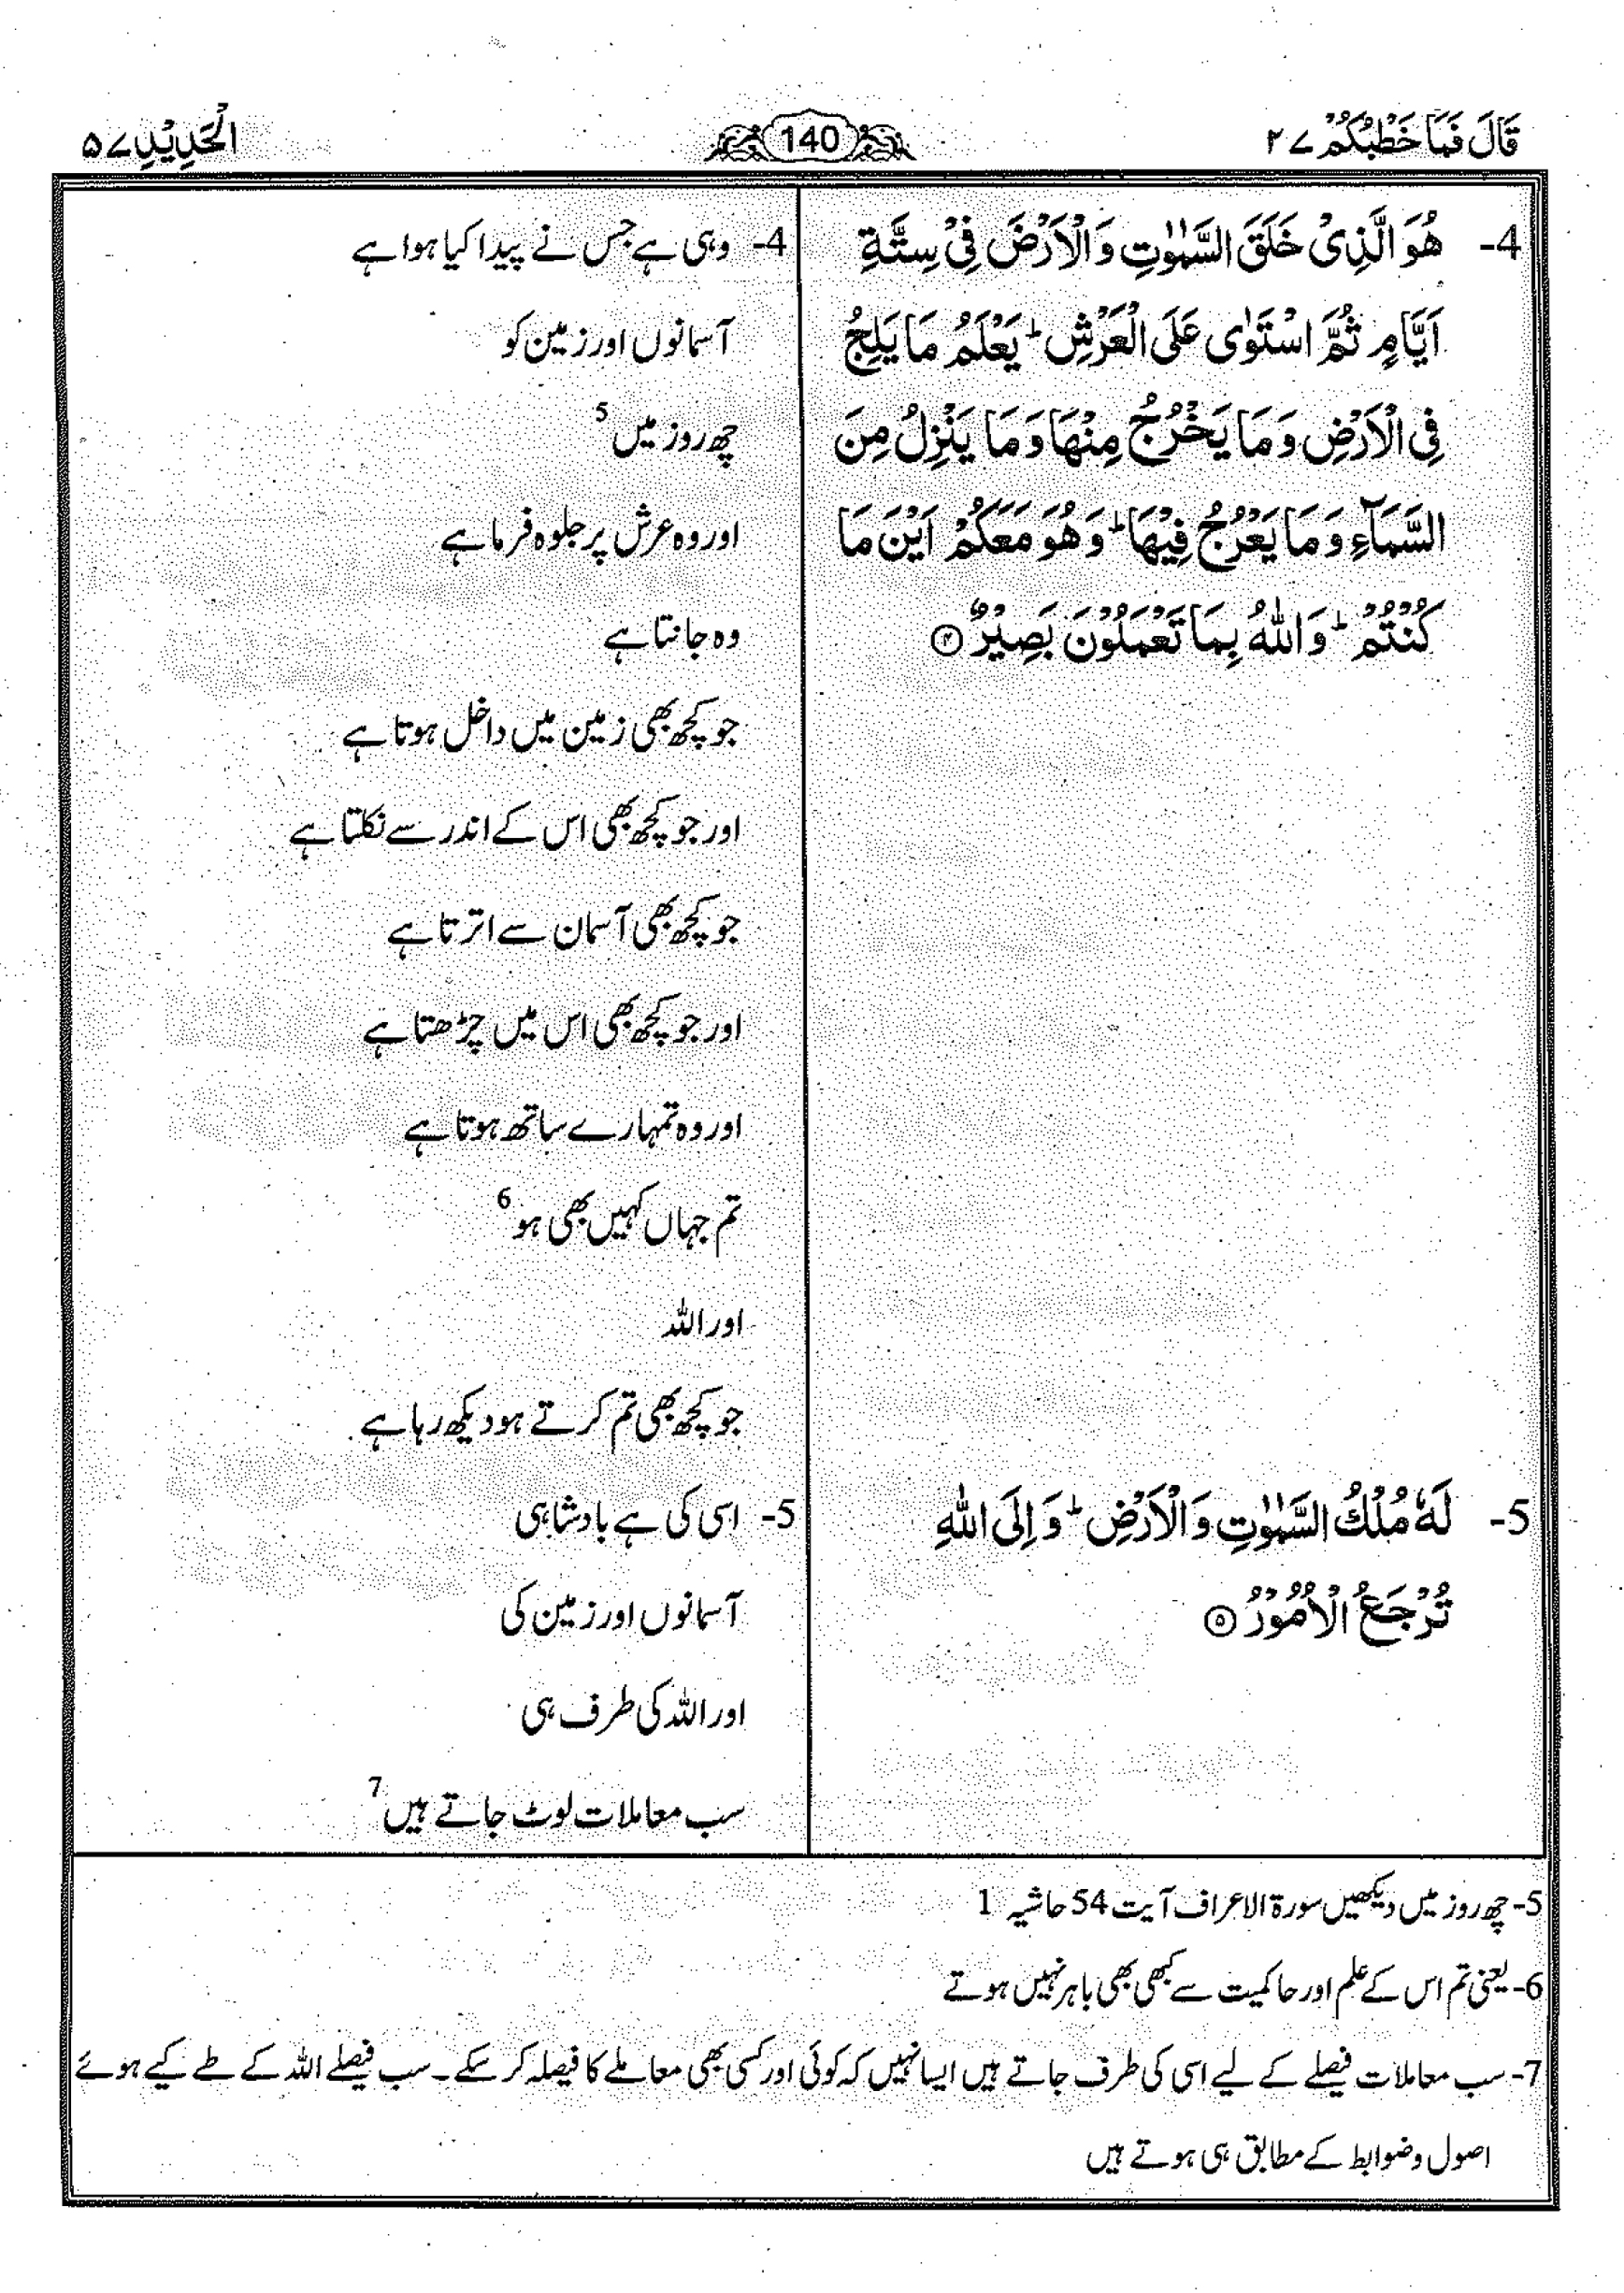 قَالَ فَمَا خَطْبُكُمْ ٢٧
140
الْحَدِيْدِ ٥٧
4- هُوَ الَّذِيْ خَلَقَ السَّمٰوٰتِ وَالْاَرْضَ فِيْ سِتَّةِ
اَيَّامٍ ثُمَّ اسْتَوٰى عَلَى الْعَرْشِ ؕ يَعْلَمُ مَا يَلِجُ
فِى الْاَرْضِ وَمَا يَخْرُجُ مِنْهَا وَمَا يَنْزِلُ مِنَ
السَّمَآءِ وَمَا يَعْرُجُ فِيْهَا ؕ وَهُوَ مَعَكُمْ اَيْنَ مَا
كُنْتُمْ ؕ وَاللّٰهُ بِمَا تَعْمَلُوْنَ بَصِيْرٌ ۴
5- لَهٗ مُلْكُ السَّمٰوٰتِ وَالْاَرْضِ ؕ وَاِلَى اللّٰهِ
تُرْجَعُ الْاُمُوْرُ ۵
4- وہی ہے جس نے پیدا کیا ہوا ہے
آسمانوں اور زمین کو
چھ روز میں 5
اور وہ عرش پر جلوہ فرما ہے
وہ جانتا ہے
جو کچھ بھی زمین میں داخل ہوتا ہے
اور جو کچھ بھی اس کے اندر سے نکلتا ہے
جو کچھ بھی آسمان سے اترتا ہے
اور جو کچھ بھی اس میں چڑھتا ہے
اور وہ تمہارے ساتھ ہوتا ہے
تم جہاں کہیں بھی ہو 6
اور اللہ
جو کچھ بھی تم کرتے ہو دیکھ رہا ہے
5- اسی کی ہے بادشاہی
آسمانوں اور زمین کی
اور اللہ کی طرف ہی
سب معاملات لوٹ جاتے ہیں 7
5- چھ روز میں دیکھیں سورۃ الاعراف آیت 54 حاشیہ 1
6- یعنی تم اس کے علم اور حاکمیت سے کبھی بھی باہر نہیں ہوتے
7- سب معاملات فیصلے کے لیے اسی کی طرف جاتے ہیں ایسا نہیں کہ کوئی اور کسی بھی معاملے کا فیصلہ کر سکے۔ سب فیصلے اللہ کے طے کیے ہوئے
اصول وضوابط کے مطابق ہی ہوتے ہیں